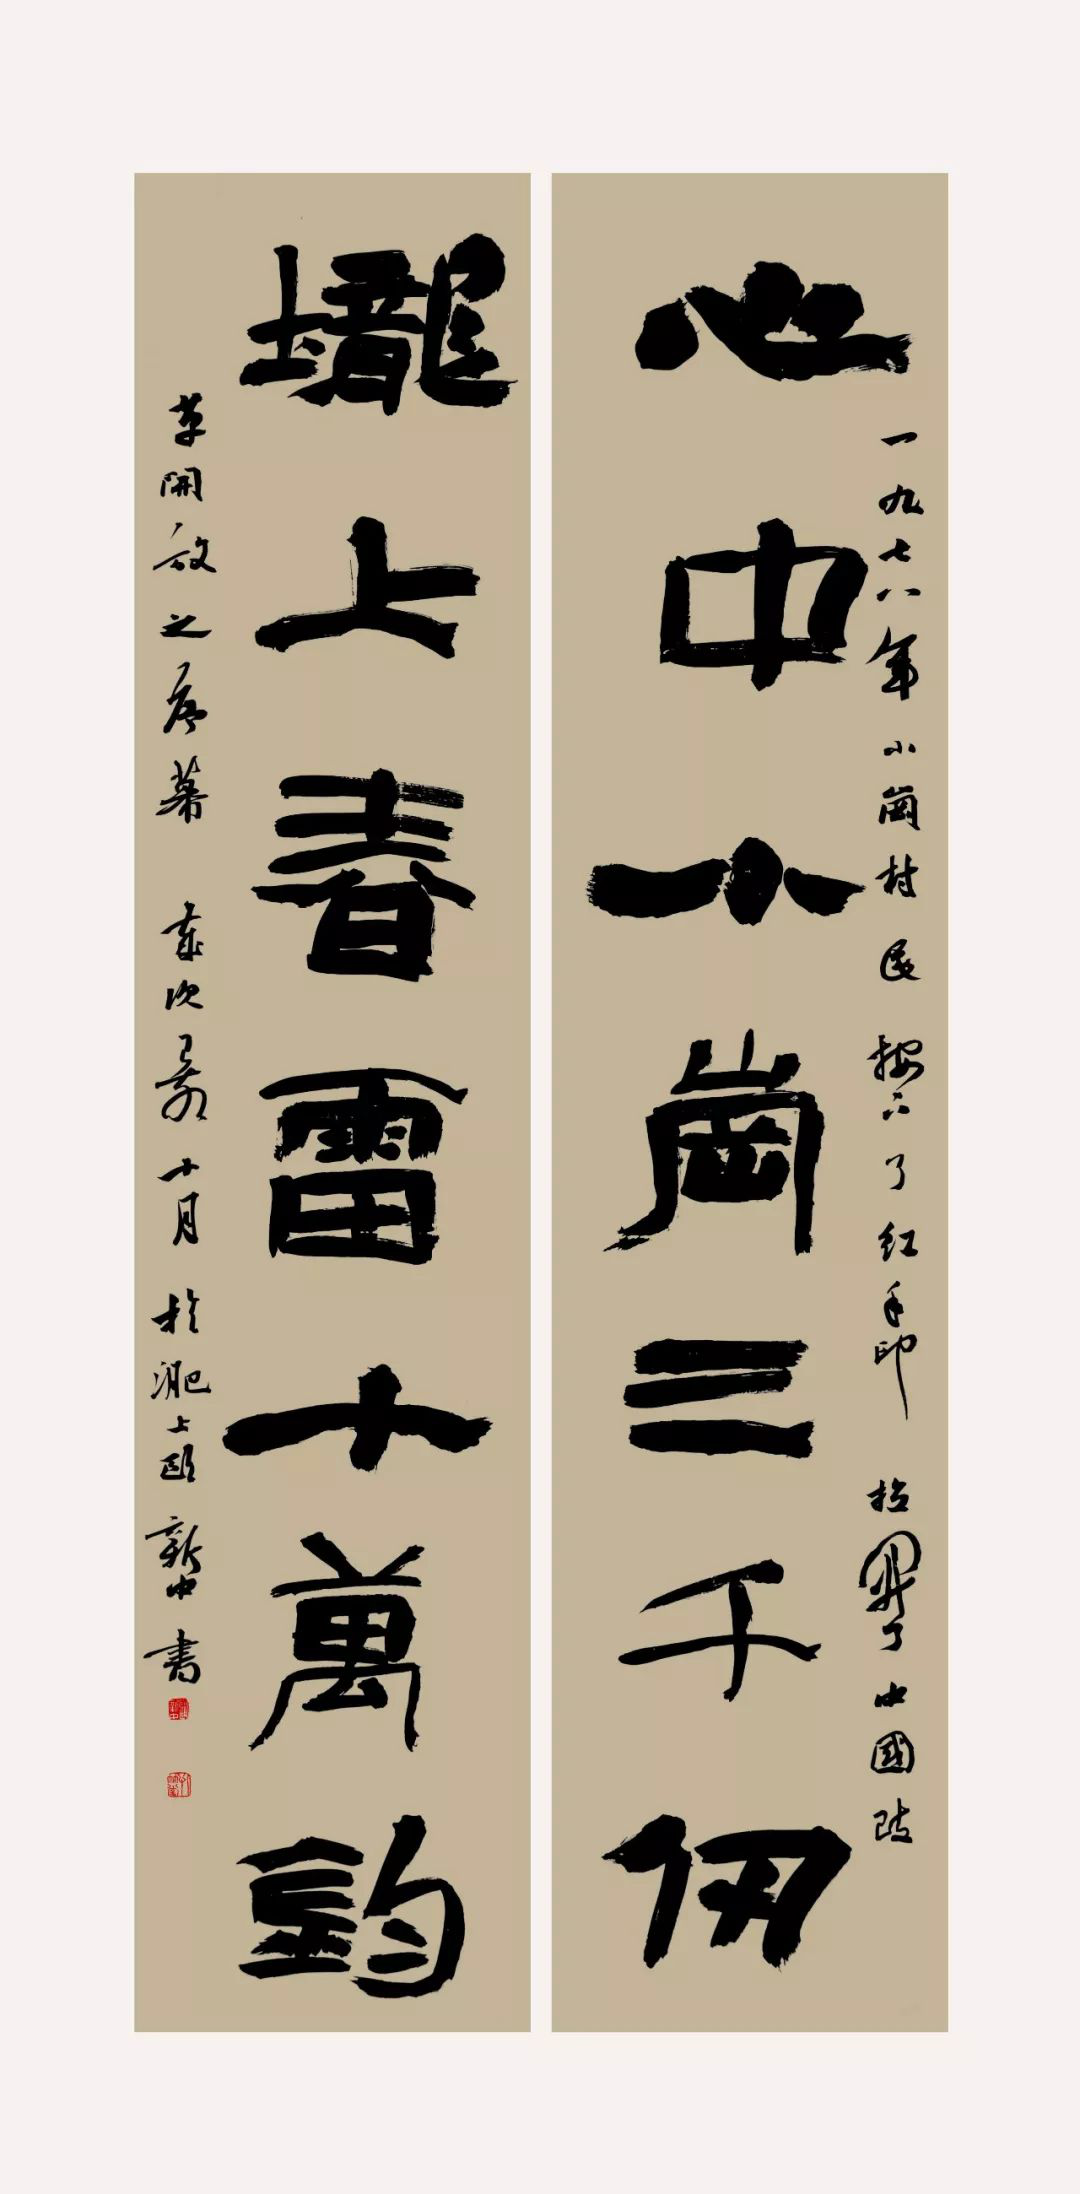 心中小崗三千仞
壠上春雷十萬鈞
一九七八年小崗村民按下了红手印拉開了中國改
革開放之序幕歲次己亥十月於淝上歐新中書